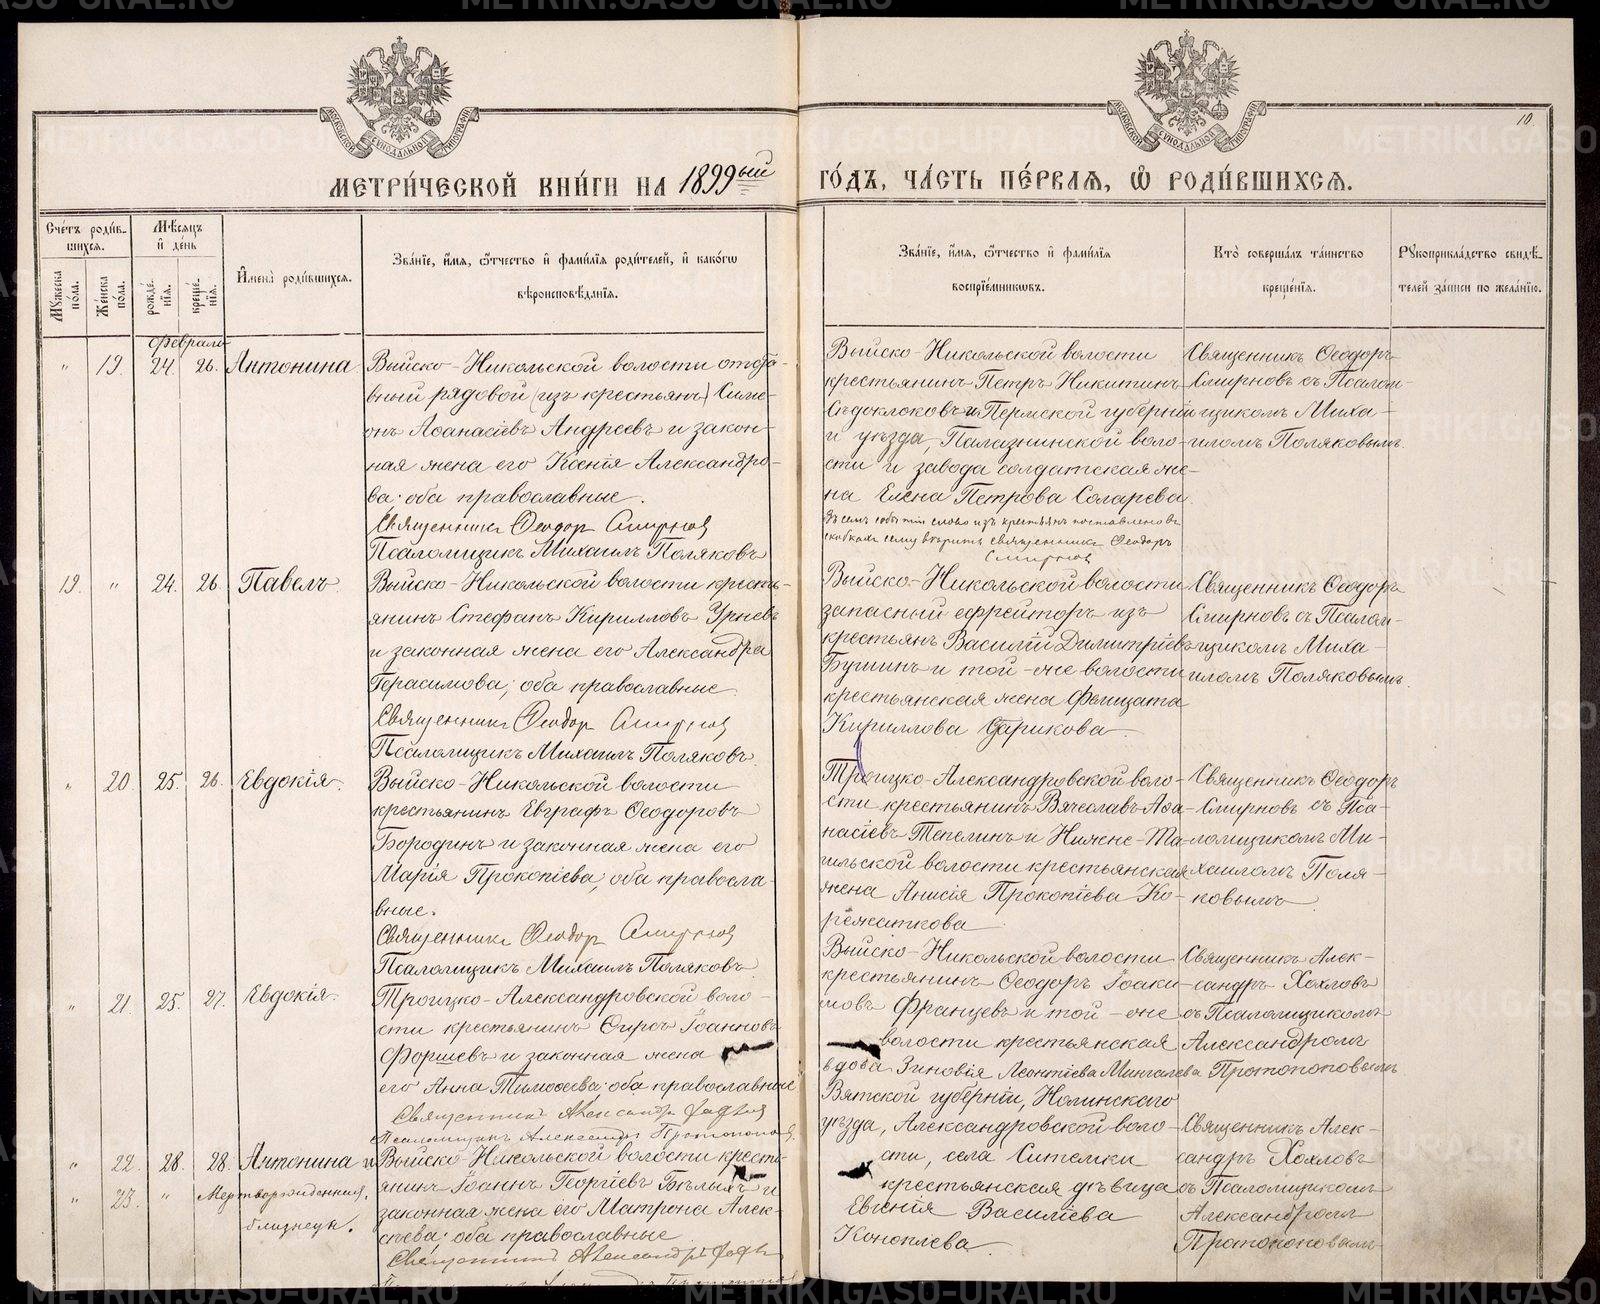 METRIKI.GASO-URAL.RU
МОСКОВСКОЙ СѴНОДАЛЬНОЙ ТИПОГРАФІИ
МЕТРИ́ЧЕСКОЙ КНИ́ГИ НА 1899ый
ГО́ДЪ, ЧА́СТЬ ПЕ́РВАЯ, Ѽ РОДИ́ВШИХСЯ.
10.
Сче́тъ роди́в-
шихся.
Мꙋ́жеска по́ла.
Же́нска по́ла.
Мѣ́сяцъ
и҆ де́нь
рожде́-
нїя.
креще́-
нїя.
И҆мена̀ роди́вшихся.
Зва́нїе, и҆́мя, ѻ҆́тчество и҆ фами́лїя роди́телей, и҆ како́гѡ
вѣроисповѣ́данїя.
Зва́нїе, и҆́мя, ѻ҆́тчество и҆ фами́лїя
воспрїе́мникѡвъ.
Кто̀ соверша́лъ та́инство
креще́нїя.
Рꙋкоприкла́дство свидѣ́-
телей за́писи по жела́нїю.
Февраль
" 19. 24. 26. Антонина.
Выйско-Никольской волости отста-
вный рядовой (изъ крестьянъ) Симе-
онъ Аѳанасіевъ Андреевъ и закон-
ная жена его Ксенія Александро-
ва; оба православные.
Священникъ Ѳеодоръ Смирновъ
Псаломщикъ Михаилъ Поляковъ
Выйско-Никольской волости
крестьянинъ Петръ Никитинъ
Сѣдоклоковъ и Пермской губерніи
и уѣзда, Палазнинской воло-
сти и завода солдатская же-
на Елена Петрова Соларева.
Въ семъ событіи слово изъ крестьянъ поставлено въ
скобкахъ сему вѣрить священникъ Ѳеодоръ
Смирновъ
Священникъ Ѳеодоръ
Смирновъ съ Псалом-
щикомъ Миха-
иломъ Поляковымъ.
19. " 24. 26. Павелъ.
Выйско-Никольской волости кресть-
янинъ Стефанъ Кирилловъ Урневъ
и законная жена его Александра
Герасимова; оба православные.
Священникъ Ѳеодоръ Смирновъ
Псаломщикъ Михаилъ Поляковъ.
Выйско-Никольской волости
запасный ефрейторъ изъ
крестьянъ Василій Димитріевъ
Бушинъ и той-же волости
крестьянская жена Фелицата
Кириллова Старикова.
Священникъ Ѳеодоръ
Смирновъ съ Псалом-
щикомъ Миха-
иломъ Поляковымъ.
" 20. 25. 26. Евдокія.
Выйско-Никольской волости
крестьянинъ Евграфъ Ѳеодоровъ
Бородинъ и законная жена его
Марія Прокопіева; оба правосла-
вные.
Священникъ Ѳеодоръ Смирновъ
Псаломщикъ Михаилъ Поляковъ.
Троицко-Александровской воло-
сти крестьянинъ Вячеславъ Аѳа-
насіевъ Тепелинъ и Нижне-Та-
гильской волости крестьянская
жена Анисія Прокопіева Ко-
режаткова
Священникъ Ѳеодоръ
Смирновъ съ Пса-
ломщикомъ Ми-
хаиломъ Поля-
ковымъ
" 21. 25. 27. Евдокія.
Троицко-Александровской воло-
сти крестьянинъ Ѳирсъ Іоанновъ
Форшевъ и законная жена
его Анна Тимоѳеева; оба православные
Священникъ Александръ
Псаломщикъ Александръ Протопоповъ.
Выйско-Никольской волости
крестьянинъ Ѳеодоръ Іоаки-
мовъ Францевъ и той-же
волости крестьянская
вдова Зиновія Леонтіева Мингалева
Священникъ Алек-
сандръ Хохловъ
съ Псаломщикомъ
Александромъ
Протопоповымъ
" 22. 28. 28. Антонина и
" 23. " Мертворожденный,
близнецы.
Выйско-Никольской волости кресть-
янинъ Іоаннъ Георгіевъ Бѣлыхъ и
законная жена его Матрона Алек-
сѣева; оба православные.
Священникъ Александръ
Вятской губерніи, Нолинскаго
уѣзда, Александровской воло-
сти, села Ситемки
крестьянская дѣвица
Евгенія Василіева
Коноплева.
Священникъ Алек-
сандръ Хохловъ
съ Псаломщикомъ
Александромъ
Протопоповымъ